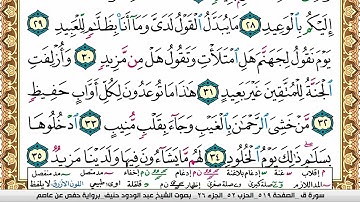 إِلَيْكُم بِٱلْوَعِيدِ ٢٨ مَا يُبَدَّلُ ٱلْقَوْلُ لَدَىَّ وَمَآ أَنَا۠ بِظَلَّٰمٍ لِّلْعَبِيدِ ٢٩
يَوْمَ نَقُولُ لِجَهَنَّمَ هَلِ ٱمْتَلَأْتِ وَتَقُولُ هَلْ مِن مَّزِيدٍ ٣٠ وَأُزْلِفَتِ
ٱلْجَنَّةُ لِلْمُتَّقِينَ غَيْرَ بَعِيدٍ ٣١ هَٰذَا مَا تُوعَدُونَ لِكُلِّ أَوَّابٍ حَفِيظٍ
٣٢ مَّنْ خَشِىَ ٱلرَّحْمَٰنَ بِٱلْغَيْبِ وَجَآءَ بِقَلْبٍ مُّنِيبٍ ٣٣ ٱدْخُلُوهَا
بِسَلَٰمٍ ذَٰلِكَ يَوْمُ ٱلْخُلُودِ ٣٤ لَهُم مَّا يَشَآءُونَ فِيهَا وَلَدَيْنَا مَزِيدٌ ٣٥
سورة ق - الصفحة ٥١٩ - الحزب ٥٢ - الجزء ٢٦ - بصوت الشيخ عبد الودود حنيف برواية حفص عن عاصم